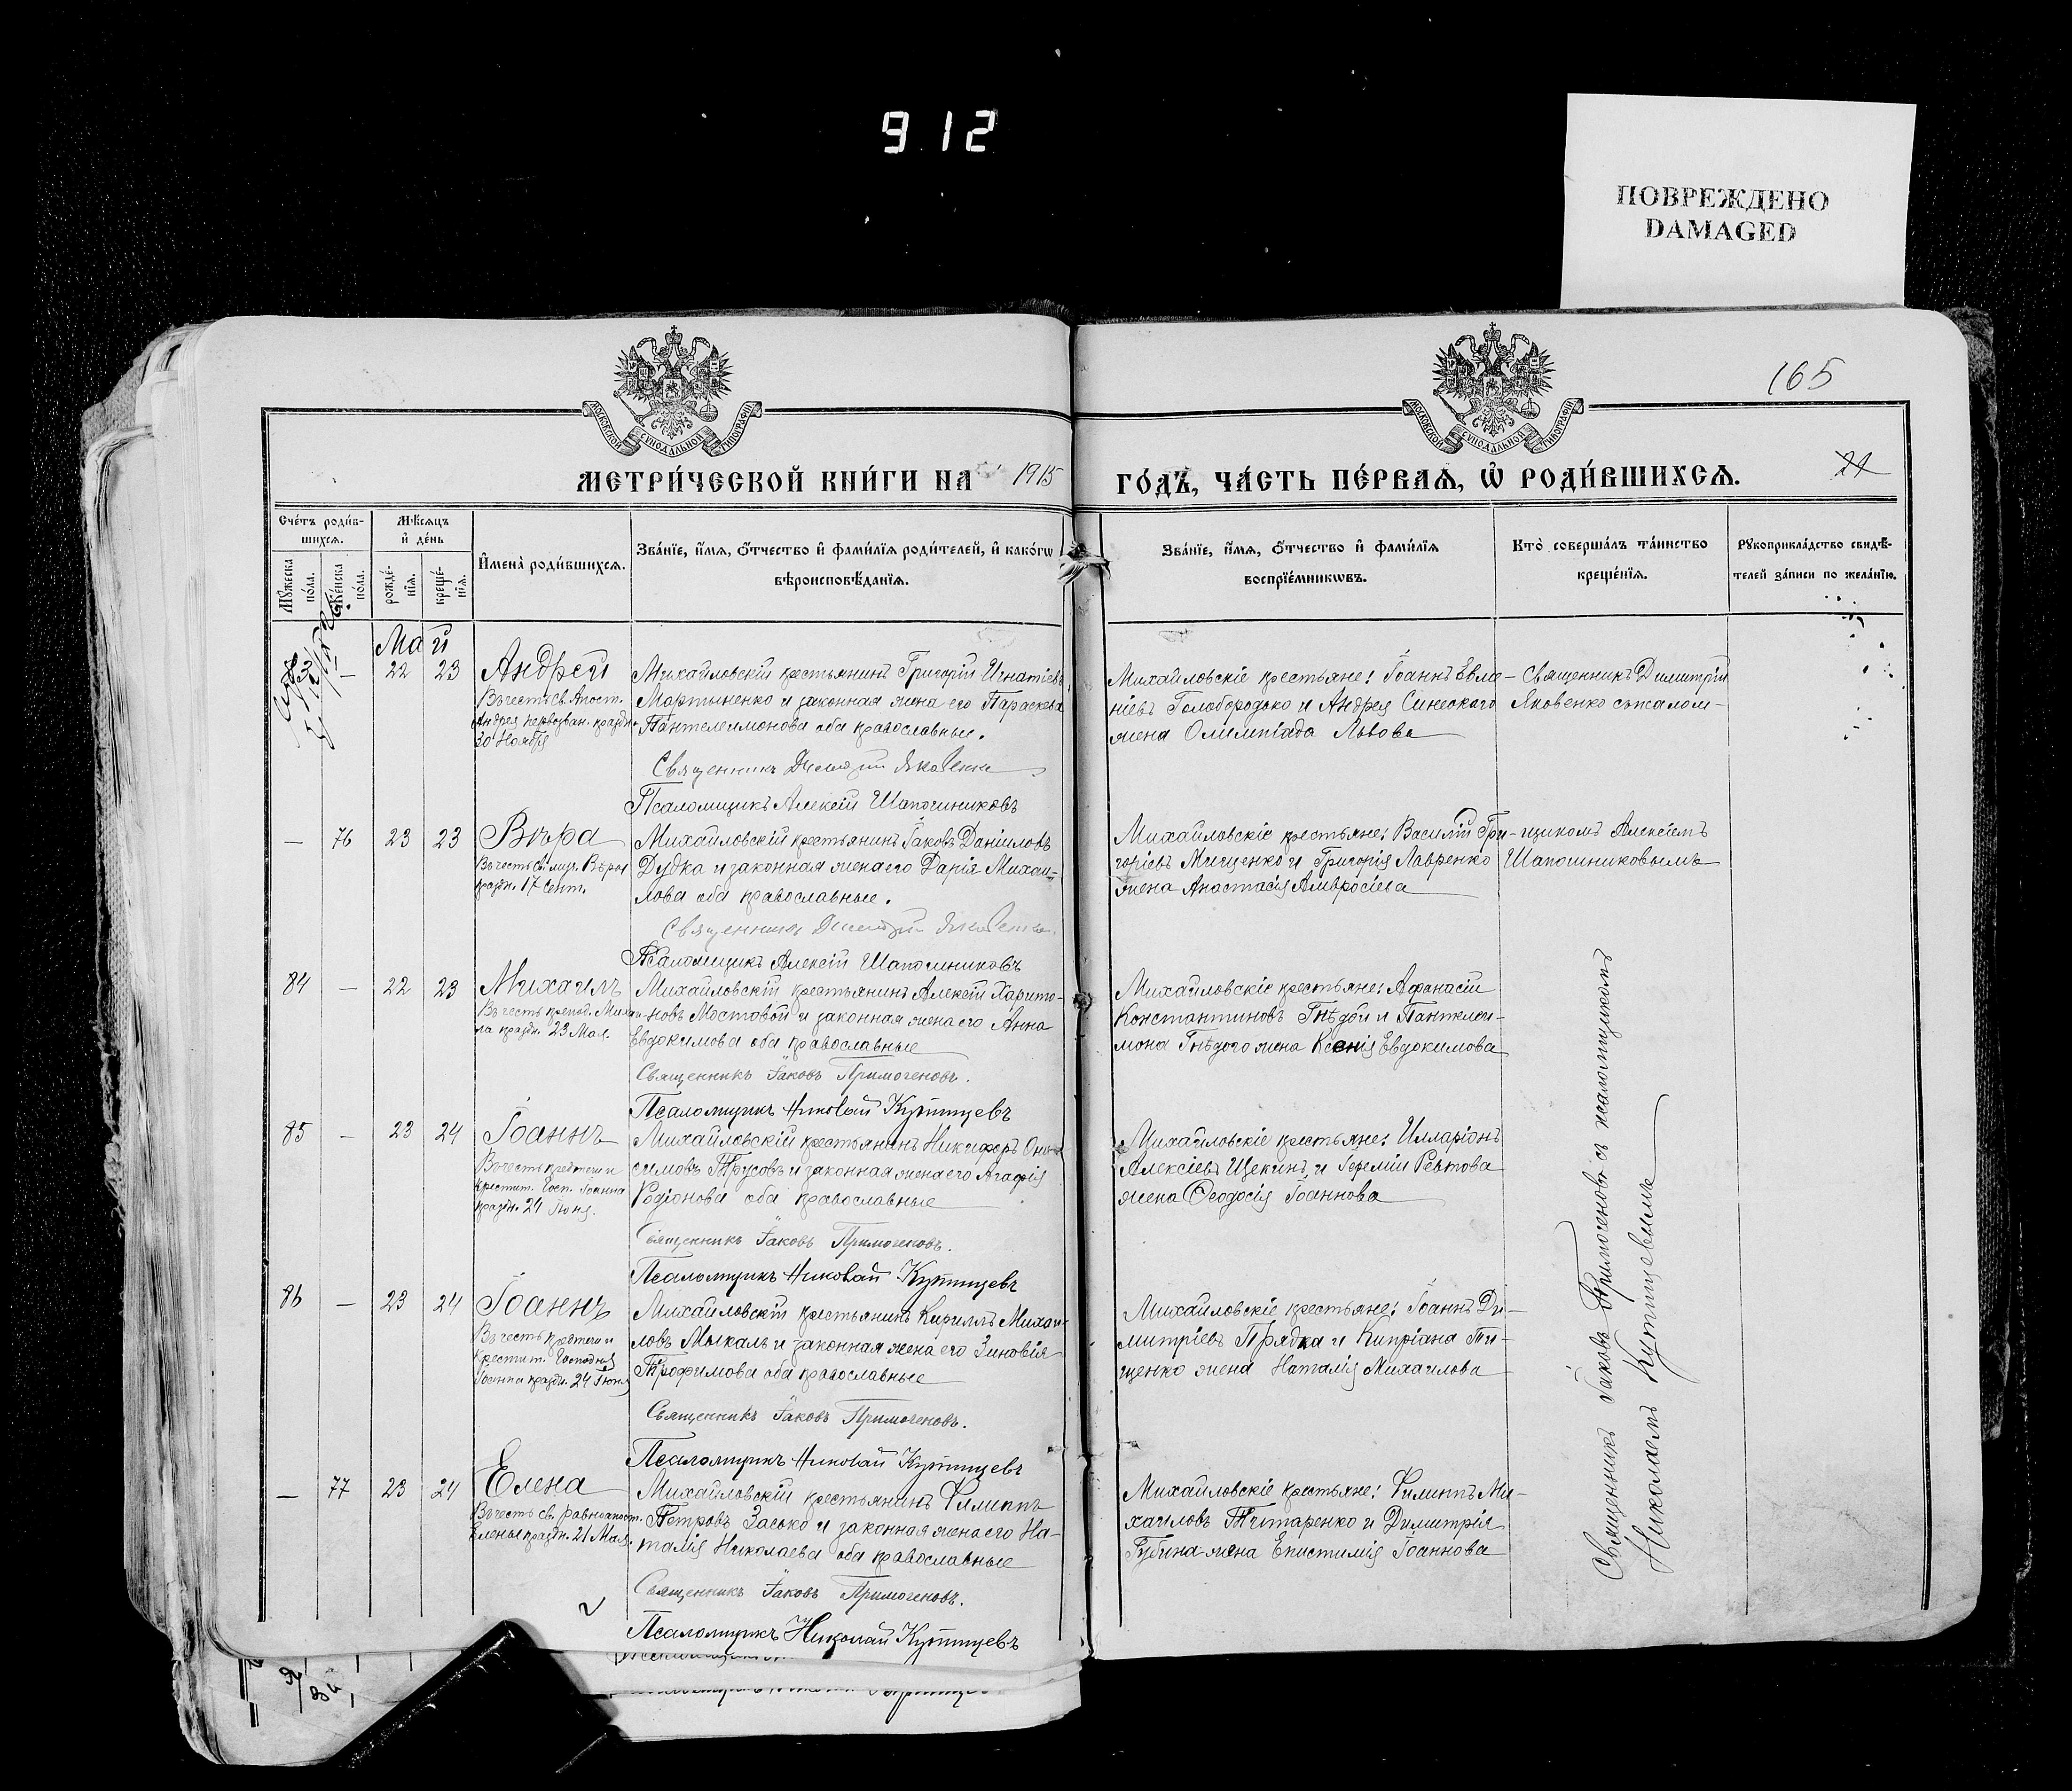 9 12
ПОВРЕЖДЕНО
DAMAGED
165
МОСКОВСКОЙ СУНОДАЛЬНОЙ ТИПОГРАФІИ
МОСКОВСКОЙ СУНОДАЛЬНОЙ ТИПОГРАФІИ
МЕТРИ́ЧЕСКОЙ КНИ́ГИ НА 1915 ГО́ДЪ, ЧА́СТЬ ПЕ́РВАѦ, Ѡ҆ РОДИ́ВШИХСѦ.
21
Сче́тъ роди́в-
шихсѧ.
Мꙋ́жеска
по́ла.
Же́нска
по́ла.
Мѣ́сѧцъ
и҆ де́нь
рожде́-
нїѧ.
креще́-
нїѧ.
И҆мена̀ роди́вшихсѧ.
Зва́нїе, и҆́мѧ, ѻ҆́тчество и҆ фами́лїѧ роди́телей, и҆ како́гѡ
вѣроисповѣ́данїѧ.
Зва́нїе, и҆́мѧ, ѻ҆́тчество и҆ фами́лїѧ
воспрїе́мникѡвъ.
Кто̀ соверша́лъ та́инство
креще́нїѧ.
Рꙋкоприкла́дство свидѣ́-
телей за́писи по жела́нїю.
Май
83 — 22 23 Андрей
Въ честь Св. Апост.
Андрея первозван. праздн.
30 Ноября
Михайловскій крестьянинъ Григорій Игнатіевъ
Мартыненко и законная жена его Параскева
Пантелеимонова оба православные.
Священникъ Димитрій Яковенко
Псаломщикъ Алексій Шапошниковъ
Михайловскіе крестьяне: Іоаннъ Евле-
ніевъ Голобородько и Андрея Синеского
жена Олимпіада Львова
Священникъ Димитрій
Яковенко съ псалом-
— 76 23 23 Вѣра
Въ честь св. муч. Вѣры
праздн. 17 Сент.
Михайловскій крестьянинъ Іаковъ Даніиловъ
Дудка и законная жена его Дарія Михаи-
лова оба православные.
Священникъ Димитрій Яковенко
Псаломщикъ Алексій Шапошниковъ
Михайловскіе крестьяне: Василій Гри-
горіевъ Мищенко и Григорія Лавренко
жена Анастасія Амвросіева
щикомъ Алексіемъ
Шапошниковымъ
84 — 22 23 Михаилъ
Въ честь препод. Михаи-
ла праздн. 23 Мая.
Михайловскій крестьянинъ Алексій Харито-
новъ Мостовой и законная жена его Анна
Евдокимова оба православные
Священникъ Іаковъ Примогеновъ.
Псаломщикъ Николай Куптцевъ
Михайловскіе крестьяне: Афанасій
Константиновъ Гнѣдой и Пантелеи-
мона Гнѣдого жена Ксенія Евдокимова
85 — 23 24 Іоаннъ
Въ честь предтечи и
крестит. Госп. Іоанна
праздн. 24 Іюня.
Михайловскій крестьянинъ Никифоръ Они-
симовъ Трусовъ и законная жена его Агафія
Родіонова оба православные
Священникъ Іаковъ Примогеновъ.
Псаломщикъ Николай Куптцевъ
Михайловскіе крестьяне: Илларіонъ
Алексіевъ Щекинъ и Іереміи Ревтова
жена Феодосія Іоаннова
86 — 23 24 Іоаннъ
Въ честь предтечи и
крестит. Господня
Іоанна праздн. 24 Іюня
Михайловскій крестьянинъ Кириллъ Михаи-
ловъ Мыкаль и законная жена его Зиновія
Трофимова оба православные
Священникъ Іаковъ Примогеновъ.
Псаломщикъ Николай Куптцевъ
Михайловскіе крестьяне: Іоаннъ Ди-
митріевъ Прядка и Кипріана Ти-
щенко жена Наталія Михаилова
— 77 23 24 Елена
Въ честь св. равноапост.
Елены праздн. 21 Мая.
Михайловскій крестьянинъ Филиппъ
Петровъ Засько и законная жена его На-
талія Николаева оба православные
Священникъ Іаковъ Примогеновъ.
Псаломщикъ Николай Куптцевъ
Михайловскіе крестьяне: Филиппъ Ми-
хаиловъ Титаренко и Димитрія
Губина жена Епистимія Іоаннова
Священникъ Іаковъ Примогеновъ съ псаломщикомъ
Николаемъ Куптцевымъ